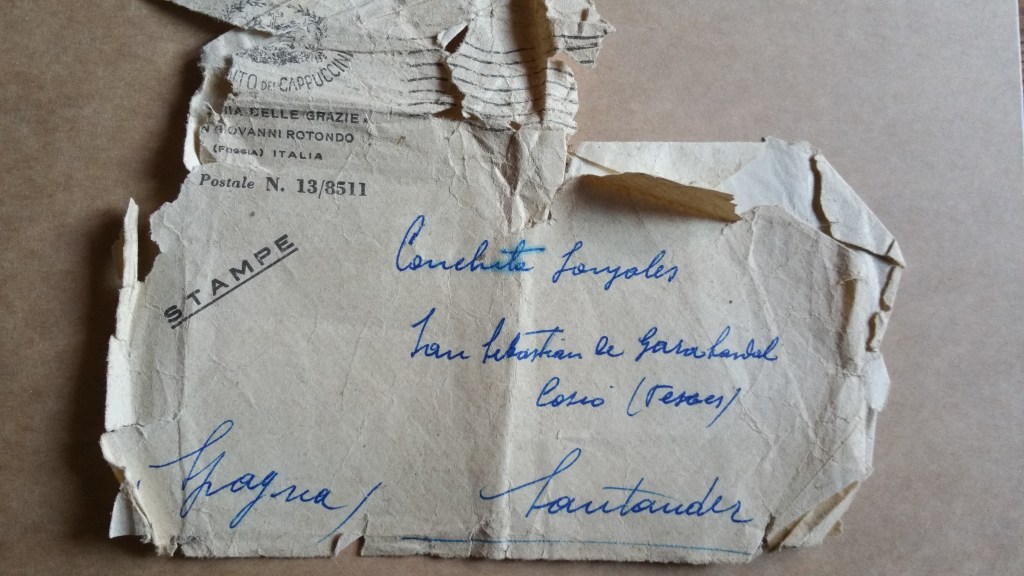 NTO DEI CAPPUCCINI
RIA DELLE GRAZIE
N GIOVANNI ROTONDO
(FOGGIA) ITALIA
Postale N. 13/8511
STAMPE
Conchita Gonzales
San Sebastian de Garabandal
Cosio (Pesues)
Spagna / Santander